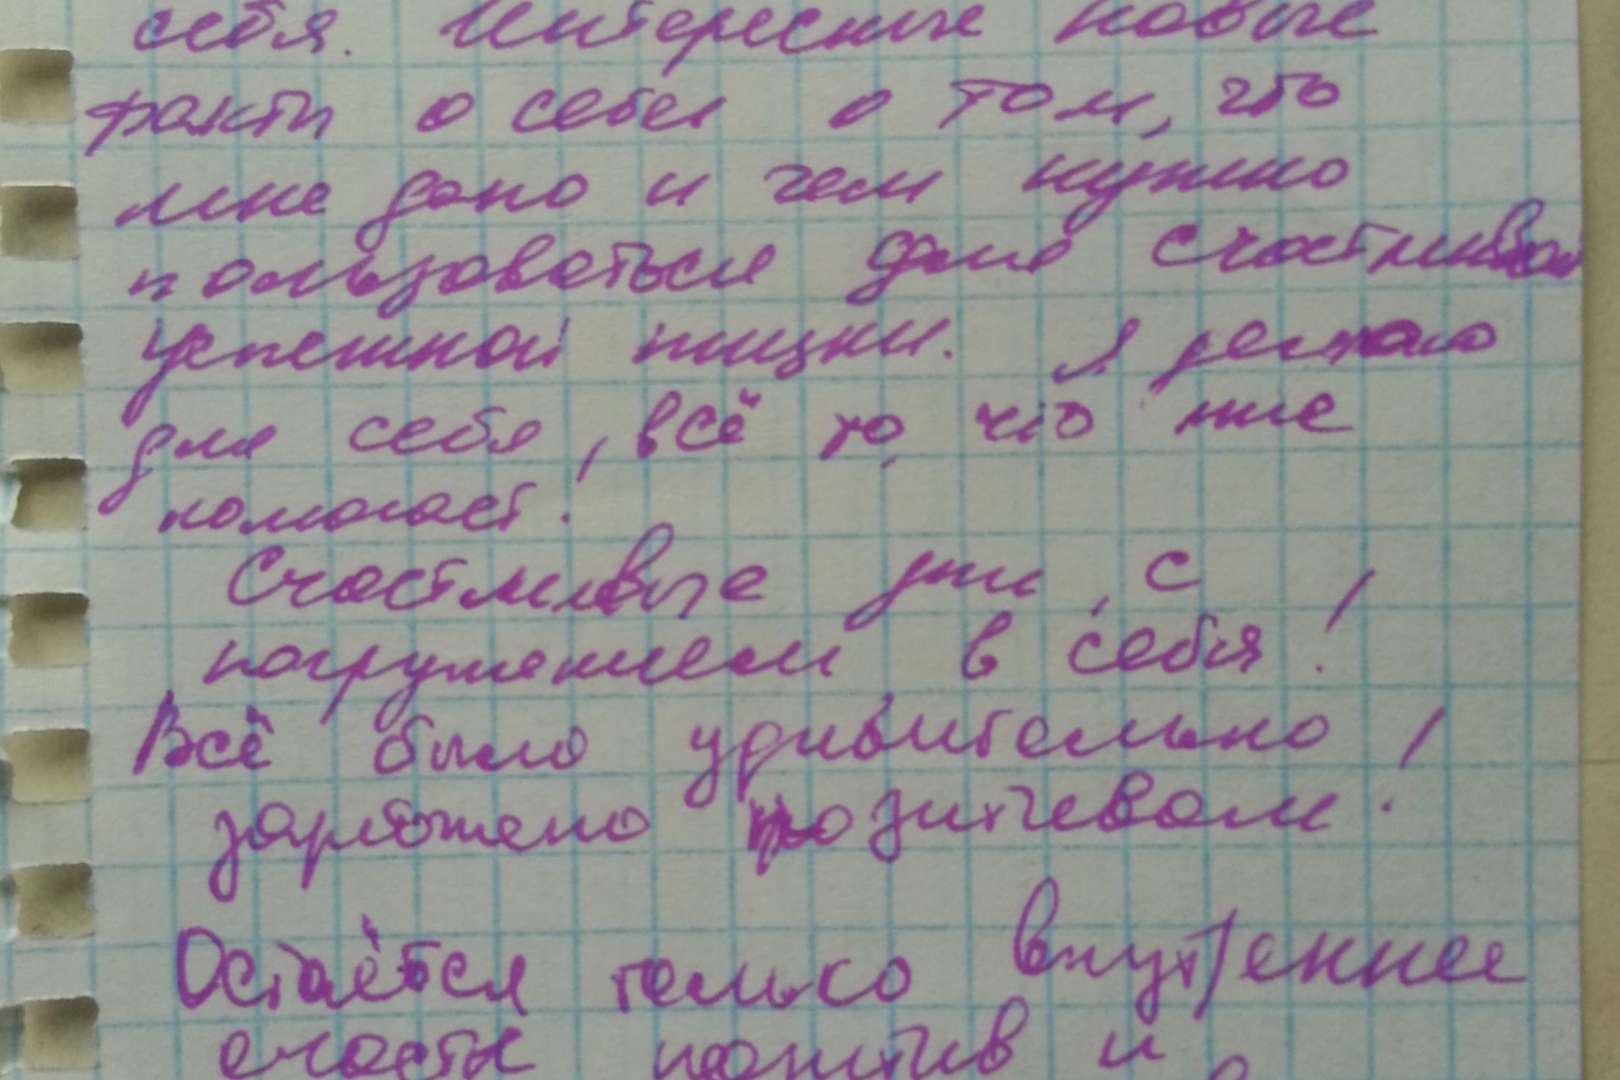 себя. Интересные новые
факты о себе и о том, что
мне дано и чем нужно
пользоваться для счастливой
успешной жизни. Я делаю
для себя, всё то, что мне
помогает!
Счастливые дни, с
погружением в себя!
Всё было удивительно
заряжено позитивом!
Остаётся только внутреннее
счастье позитив и